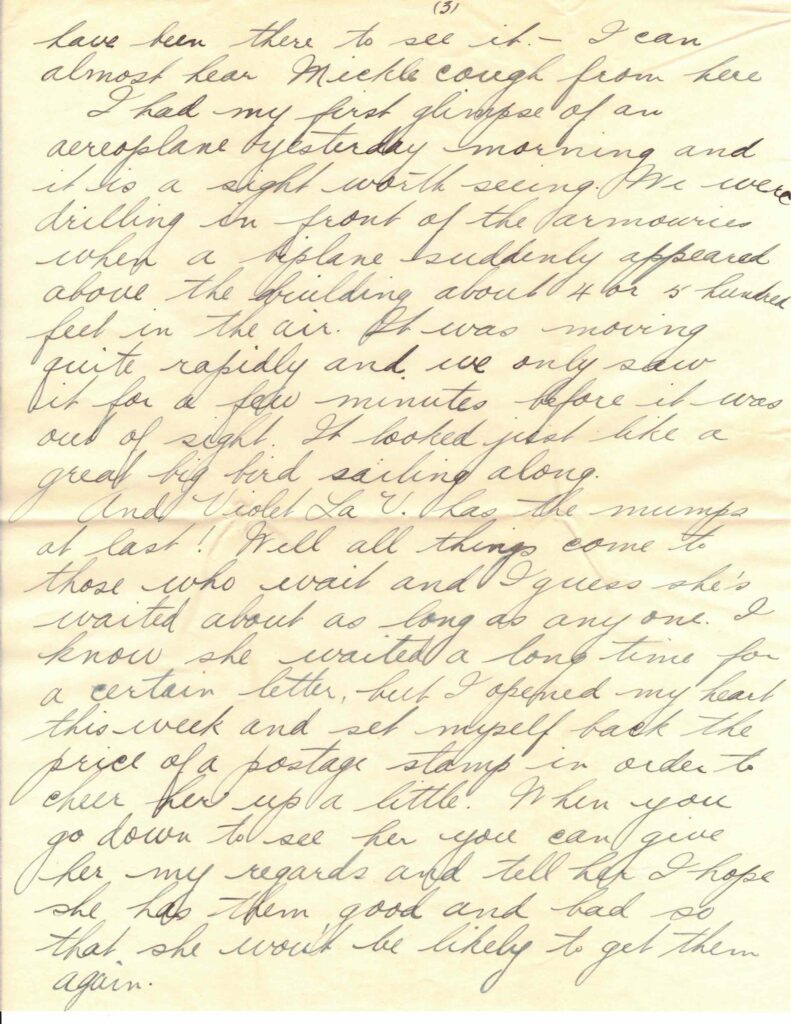 (3)
have been there to see it. – I can
almost hear Mickle cough from here
I had my first glimpse of an
aereoplane yesterday morning and
it is a sight worth seeing. We were
drilling in front of the armouries
when a biplane suddenly appeared
above the building about 4 or 5 hundred
feet in the air. It was moving
quite rapidly and we only saw
it for a few minutes before it was
out of sight. It looked just like a
great big bird sailing along.
And Violet La V. has the mumps
at last! Well all things come to
those who wait and I guess she's
waited about as long as any one. I
know she waited a long time for
a certain letter, but I opened my heart
this week and set myself back the
price of a postage stamp in order to
cheer her up a little. When you
go down to see her you can give
her my regards and tell her I hope
she has them good and bad so
that she won't be likely to get them
again.